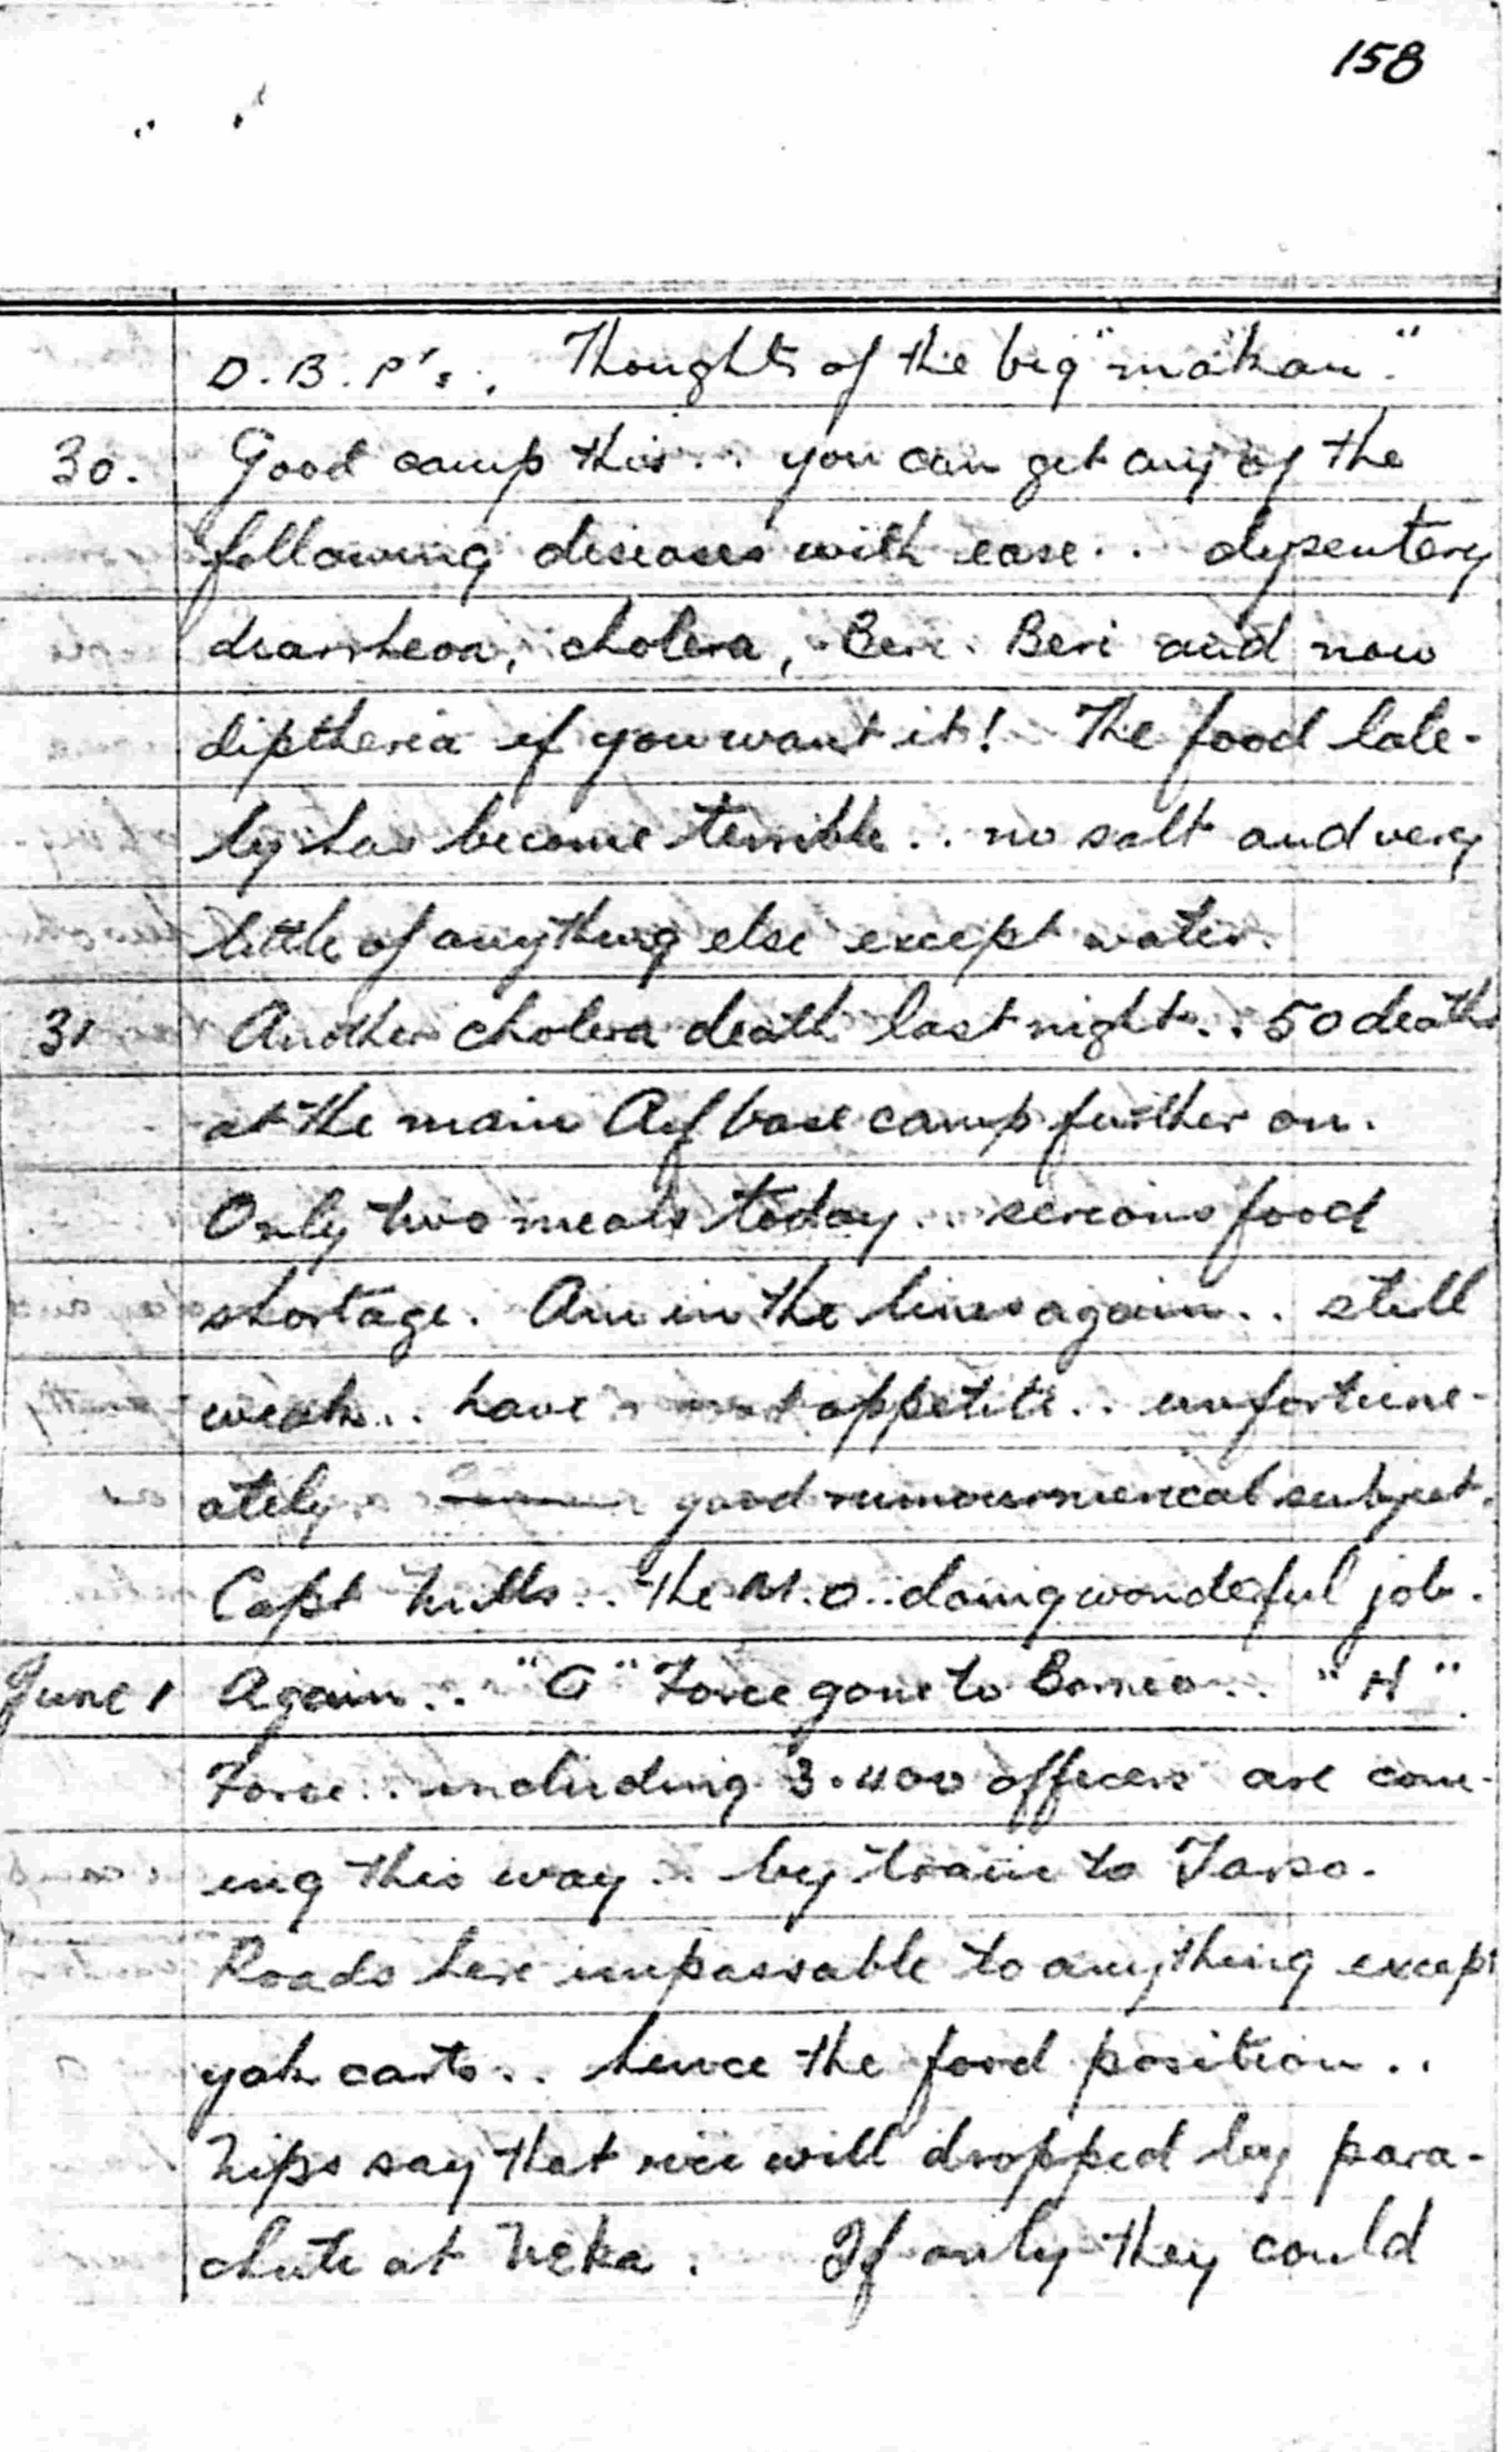 158
D.B.P's.. Thoughts of the big "makan."
30. Good camp this.. you can get any of the
following diseases with ease.. dysentery
diarrheoa, cholera, Beri. Beri and now
diptheria if you want it! The food late-
ly has become terrible.. no salt and very
little of anything else except water.
31 Another cholera death last night.. 50 deaths
at the main Aif base camp further on.
Only two meals today.. serious food
shortage. Am in the lines again.. still
weak.. have appetite.. unfortune-
ately. good rumourmerical subject.
Capt Mills.. the M.O.. doing wonderful job.
June 1 Again.. "G" Force gone to Borneo.. "H"
Force.. including 3.400 officers are com-
ing this way.. by train to Tarso.
Roads here impassable to anything except
yak carts.. hence the food position..
Nips say that rice will dropped by para-
chute at Neka. If only they could